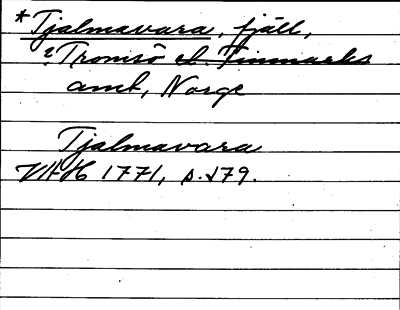 *Tjalmavara, fjäll,
? Tromsö el. Finmarks
amt, Norge
Tjalmavara
VAH 1771, s. 179.